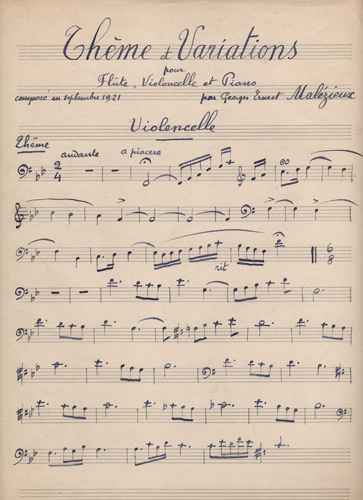 Thême et Variations
pour
Flûte, Violoncelle et Piano
composé en septembre 1921 par Georges Ernest Malézieux
Violencelle
Thême
andante a piacere
2
4
rit
6
8